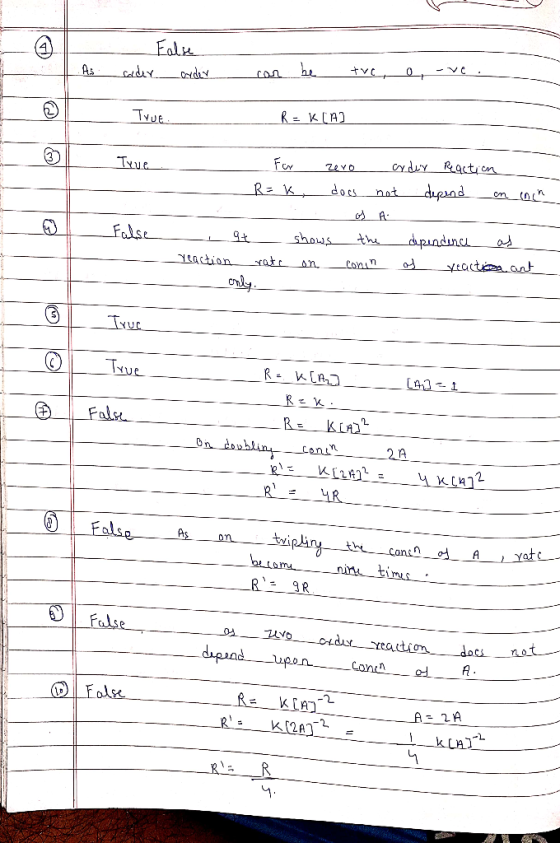 ① False
As order order can be +ve, 0, -ve.
② True. R = K[A]
③ True For zero order Reaction
R = K, does not depend on concⁿ
of A.
④ False, It shows the dependence of
reaction rate on concⁿ of reactant
only.
⑤ True
⑥ True R = K[A] [A] = 1
R = K.
⑦ False R = K[A]²
On doubling concⁿ 2A
R' = K[2A]² = 4 K[A]²
R' = 4R
⑧ False As on tripling the concⁿ of A, rate
become nine times.
R' = 9R
⑨ False, as zero order reaction does not
depend upon concⁿ of A.
⑩ False R = K[A]⁻² A = 2A
R' = K[2A]⁻² = 1/4 K[A]⁻²
R' = R/4.